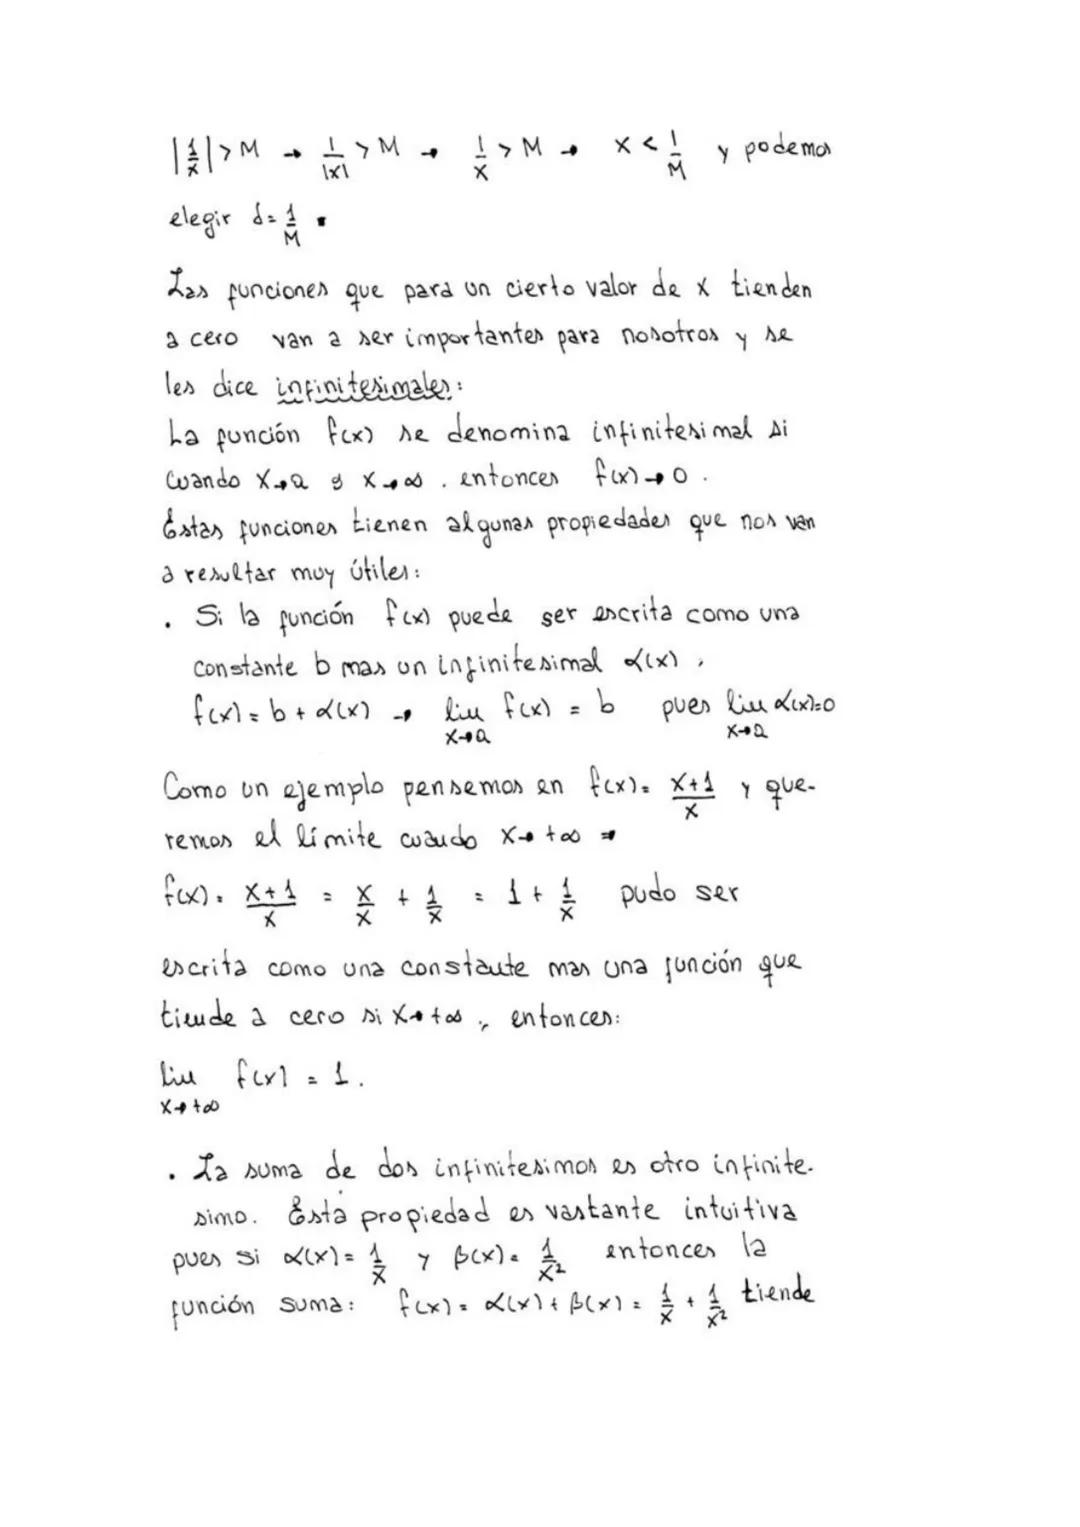 |1/x| > M → 1/|x| > M → 1/x > M → x < 1/M y podemos
elegir δ = 1/M .
Las funciones que para un cierto valor de x tienden
a cero van a ser importantes para nosotros y se
les dice infinitesimales:
La función f(x) se denomina infinitesimal si
cuando x→a ó x→∞ , entonces f(x)→0 .
Estas funciones tienen algunas propiedades que nos van
a resultar muy útiles:
. Si la función f(x) puede ser escrita como una
constante b mas un infinitesimal α(x) ,
f(x) = b + α(x) → lim x→a f(x) = b pues lim x→a α(x)=0
Como un ejemplo pensemos en f(x) = x+1/x y que-
remos el límite cuando x→ +∞ ⇒
f(x) = x+1/x = x/x + 1/x = 1 + 1/x pudo ser
escrita como una constante mas una función que
tiende a cero si x→+∞ , entonces:
lim x→+∞ f(x) = 1 .
. La suma de dos infinitesimos es otro infinite-
simo. Esta propiedad es vastante intuitiva
pues si α(x) = 1/x y β(x) = 1/x² entonces la
función suma: f(x) = α(x) + β(x) = 1/x + 1/x² tiende